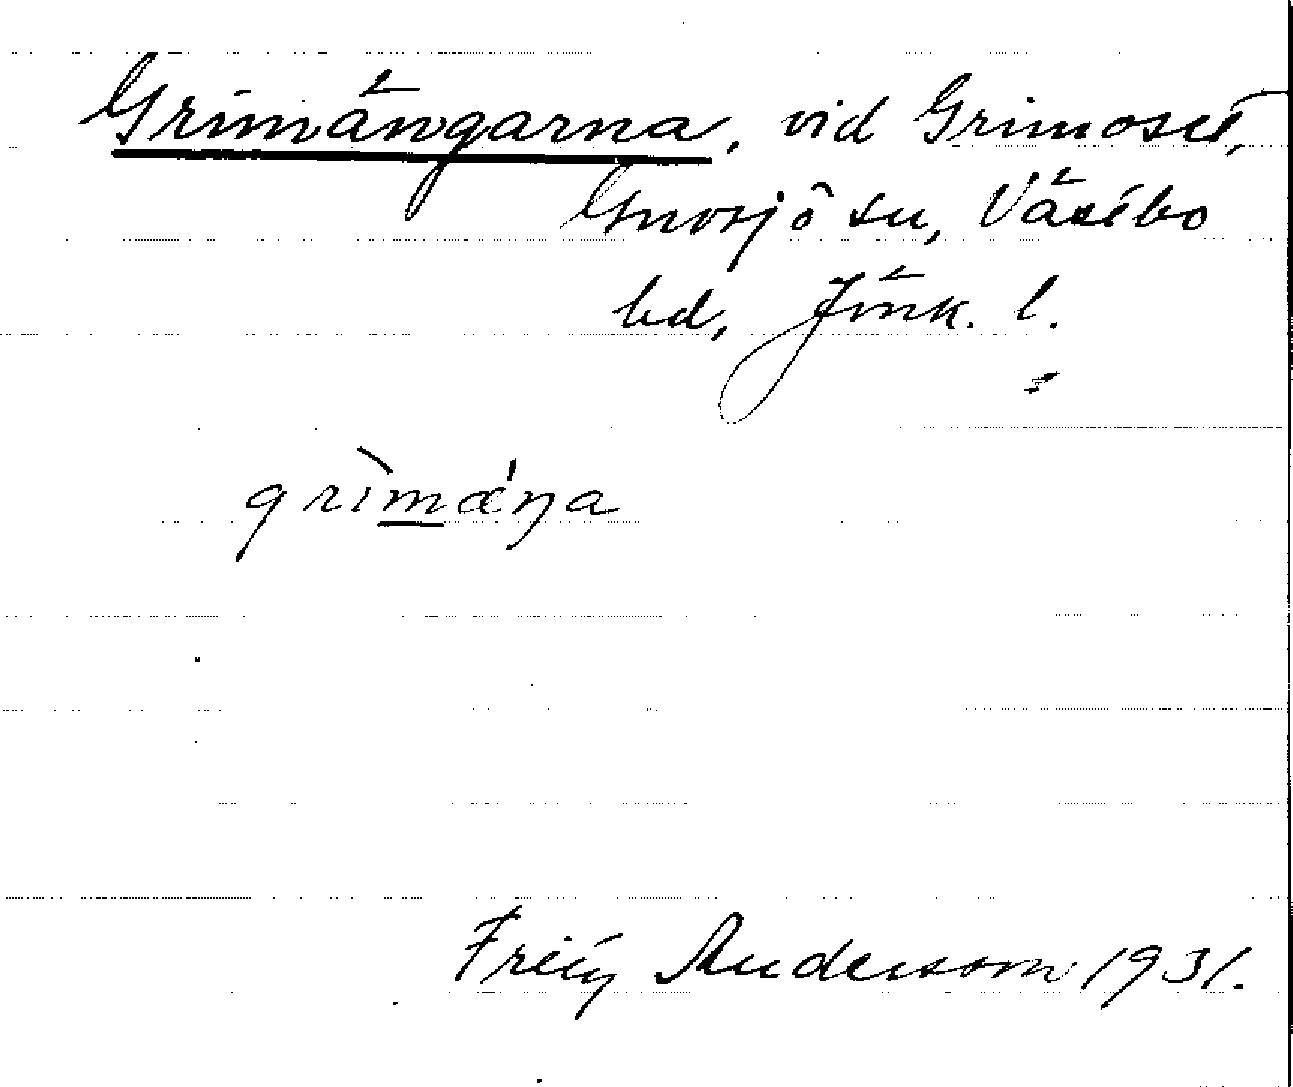 Grimängarna, vid Grimoset,
Gnosjö sn, Västbo
hd, Jönk. l.
grìmǽŋa
Fritiz Andersson 1931.